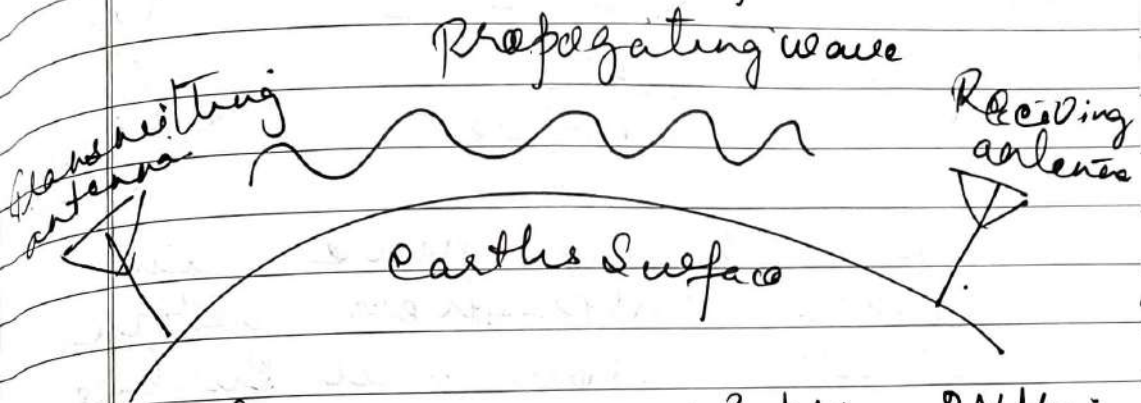 Propagating wave
Transmitting
antenna
Receiving
antenna
Earths Surface